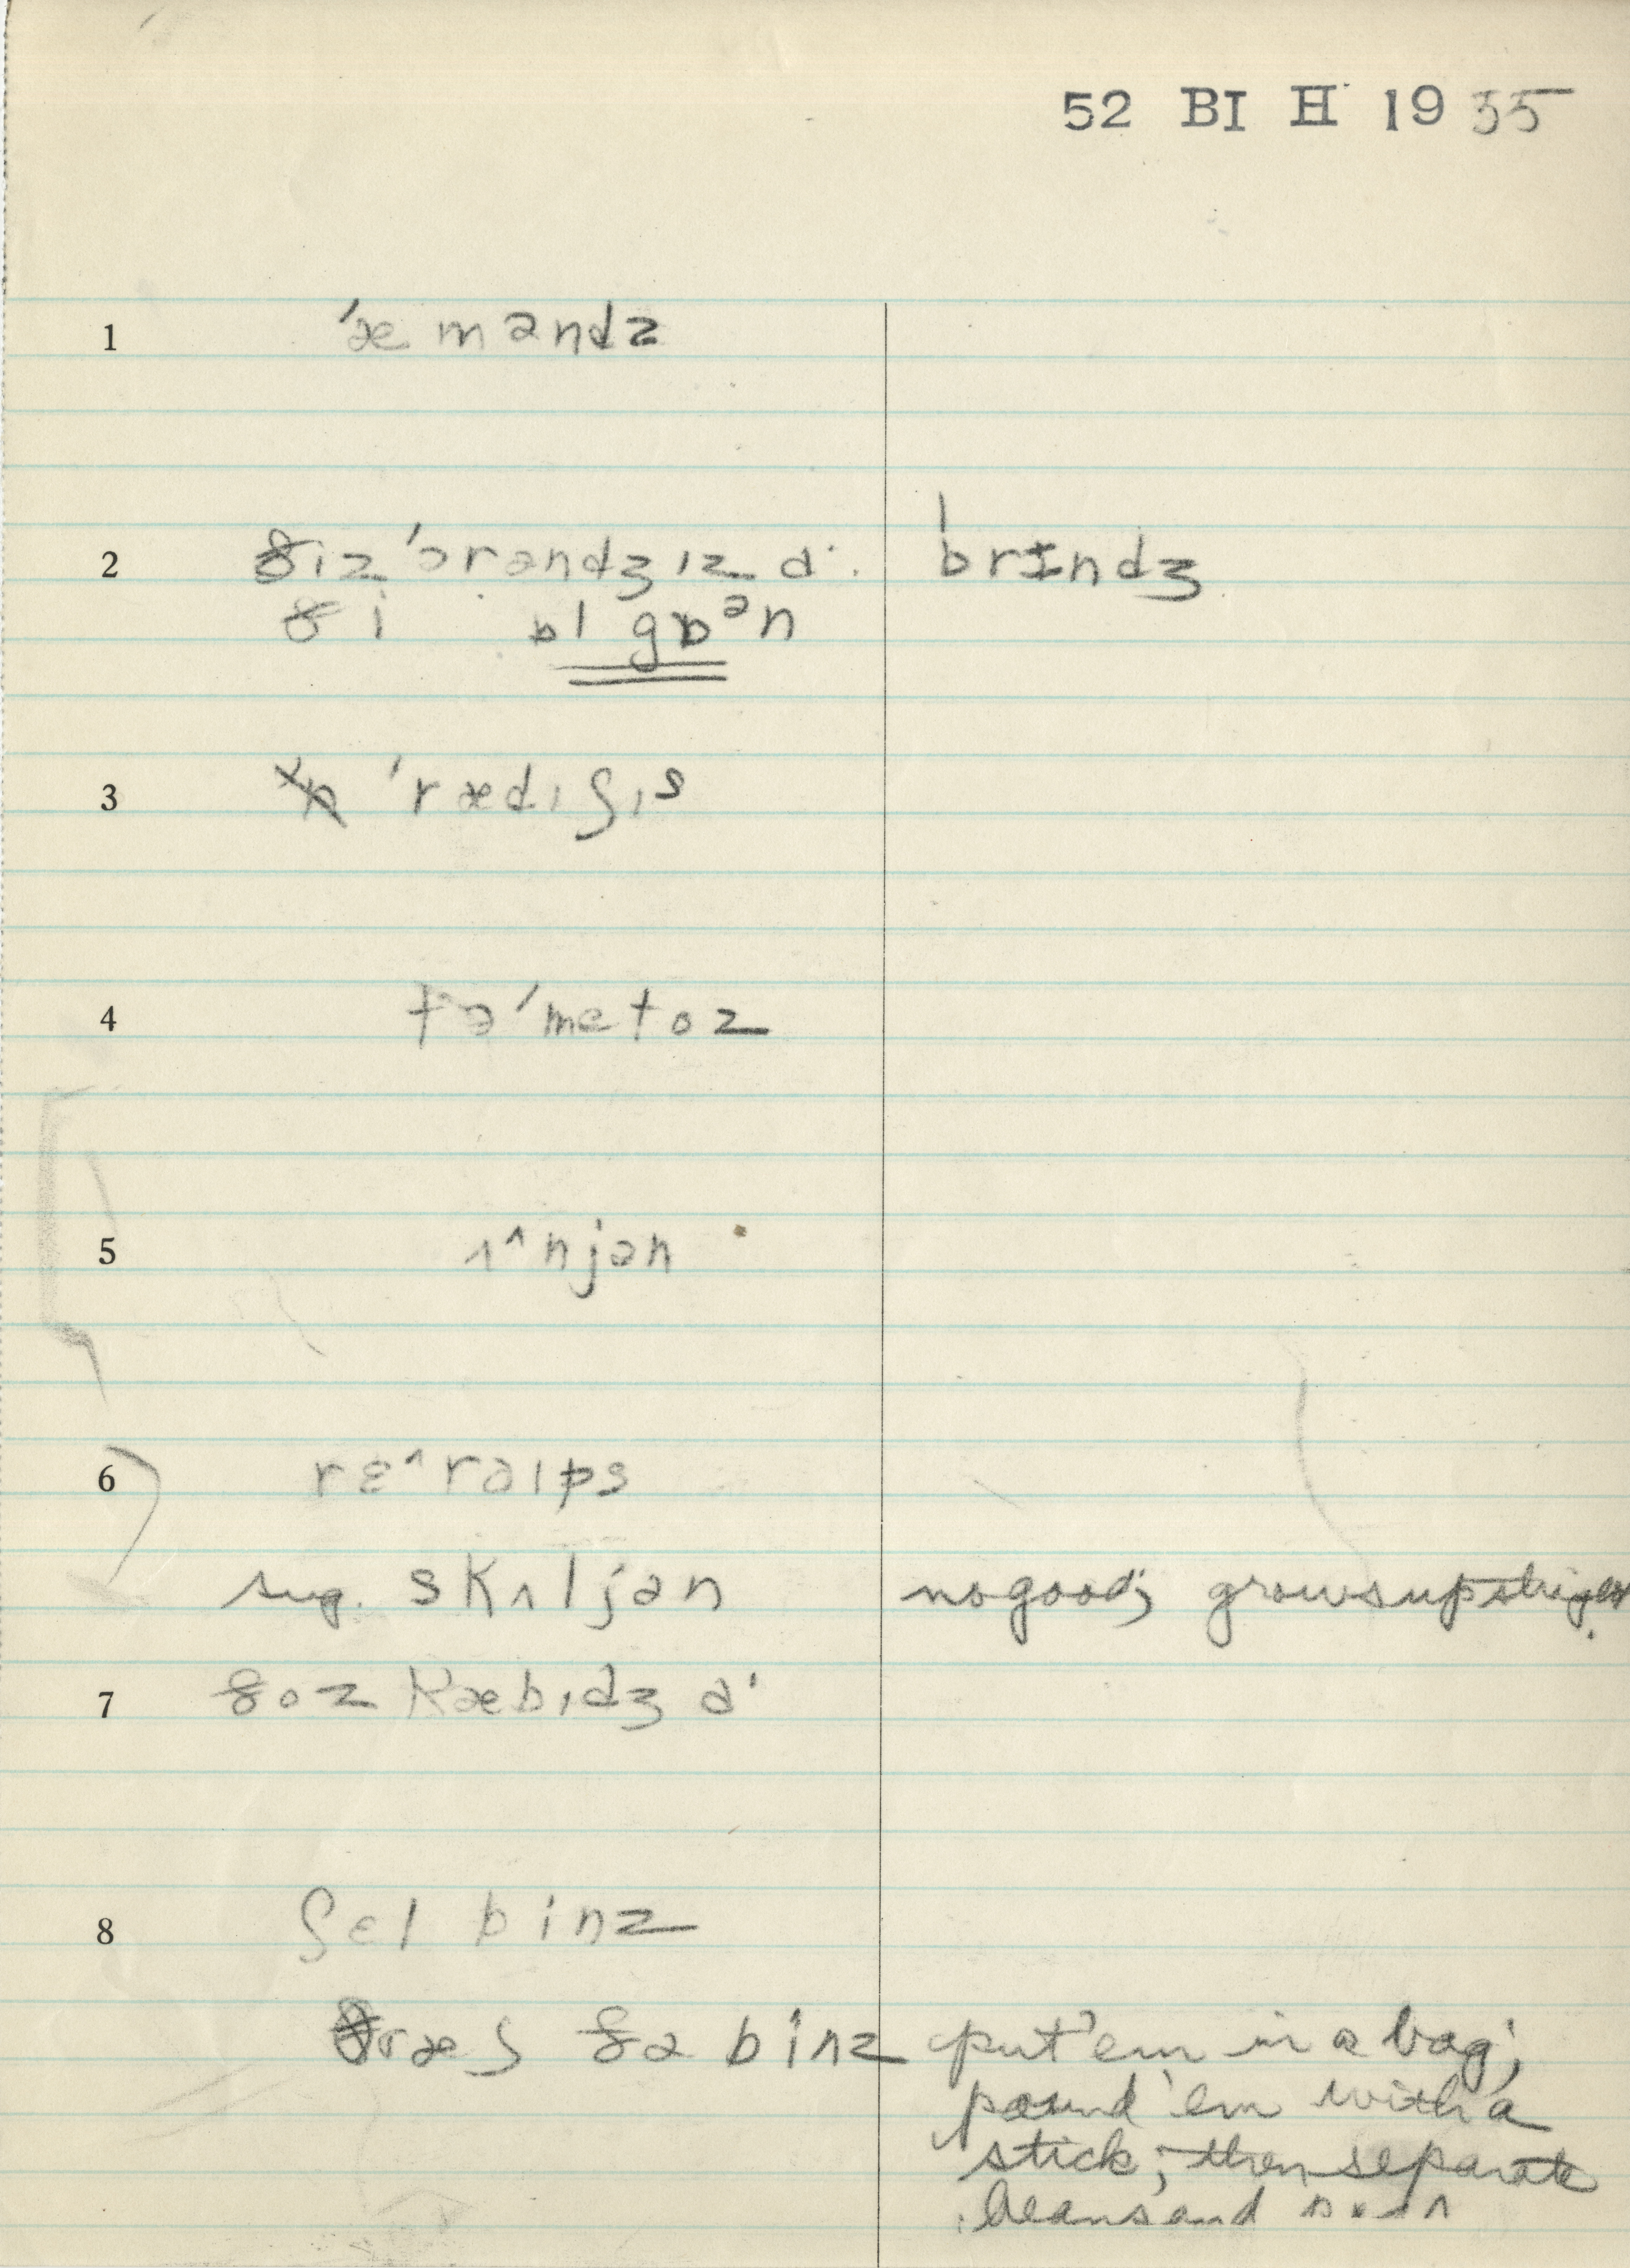 52 BI H 1935
1 ˈæməndz
2 ðiz ˈɔrəndʒ ɪz ɑ· brɪndʒ
ði ɒl gɒᵊn
3 ˈrædɪʃɪs
4 təˈmetoz
5 ʌ^njən
6 rɛ^rəɪps
sug. skʌljən no good;
7 ðoz kæbɪdʒ ə·
8 ʃɛl binz
θræʃ ðə binz put 'em in a bag;
pound 'em with a
stick; then separate
beans and